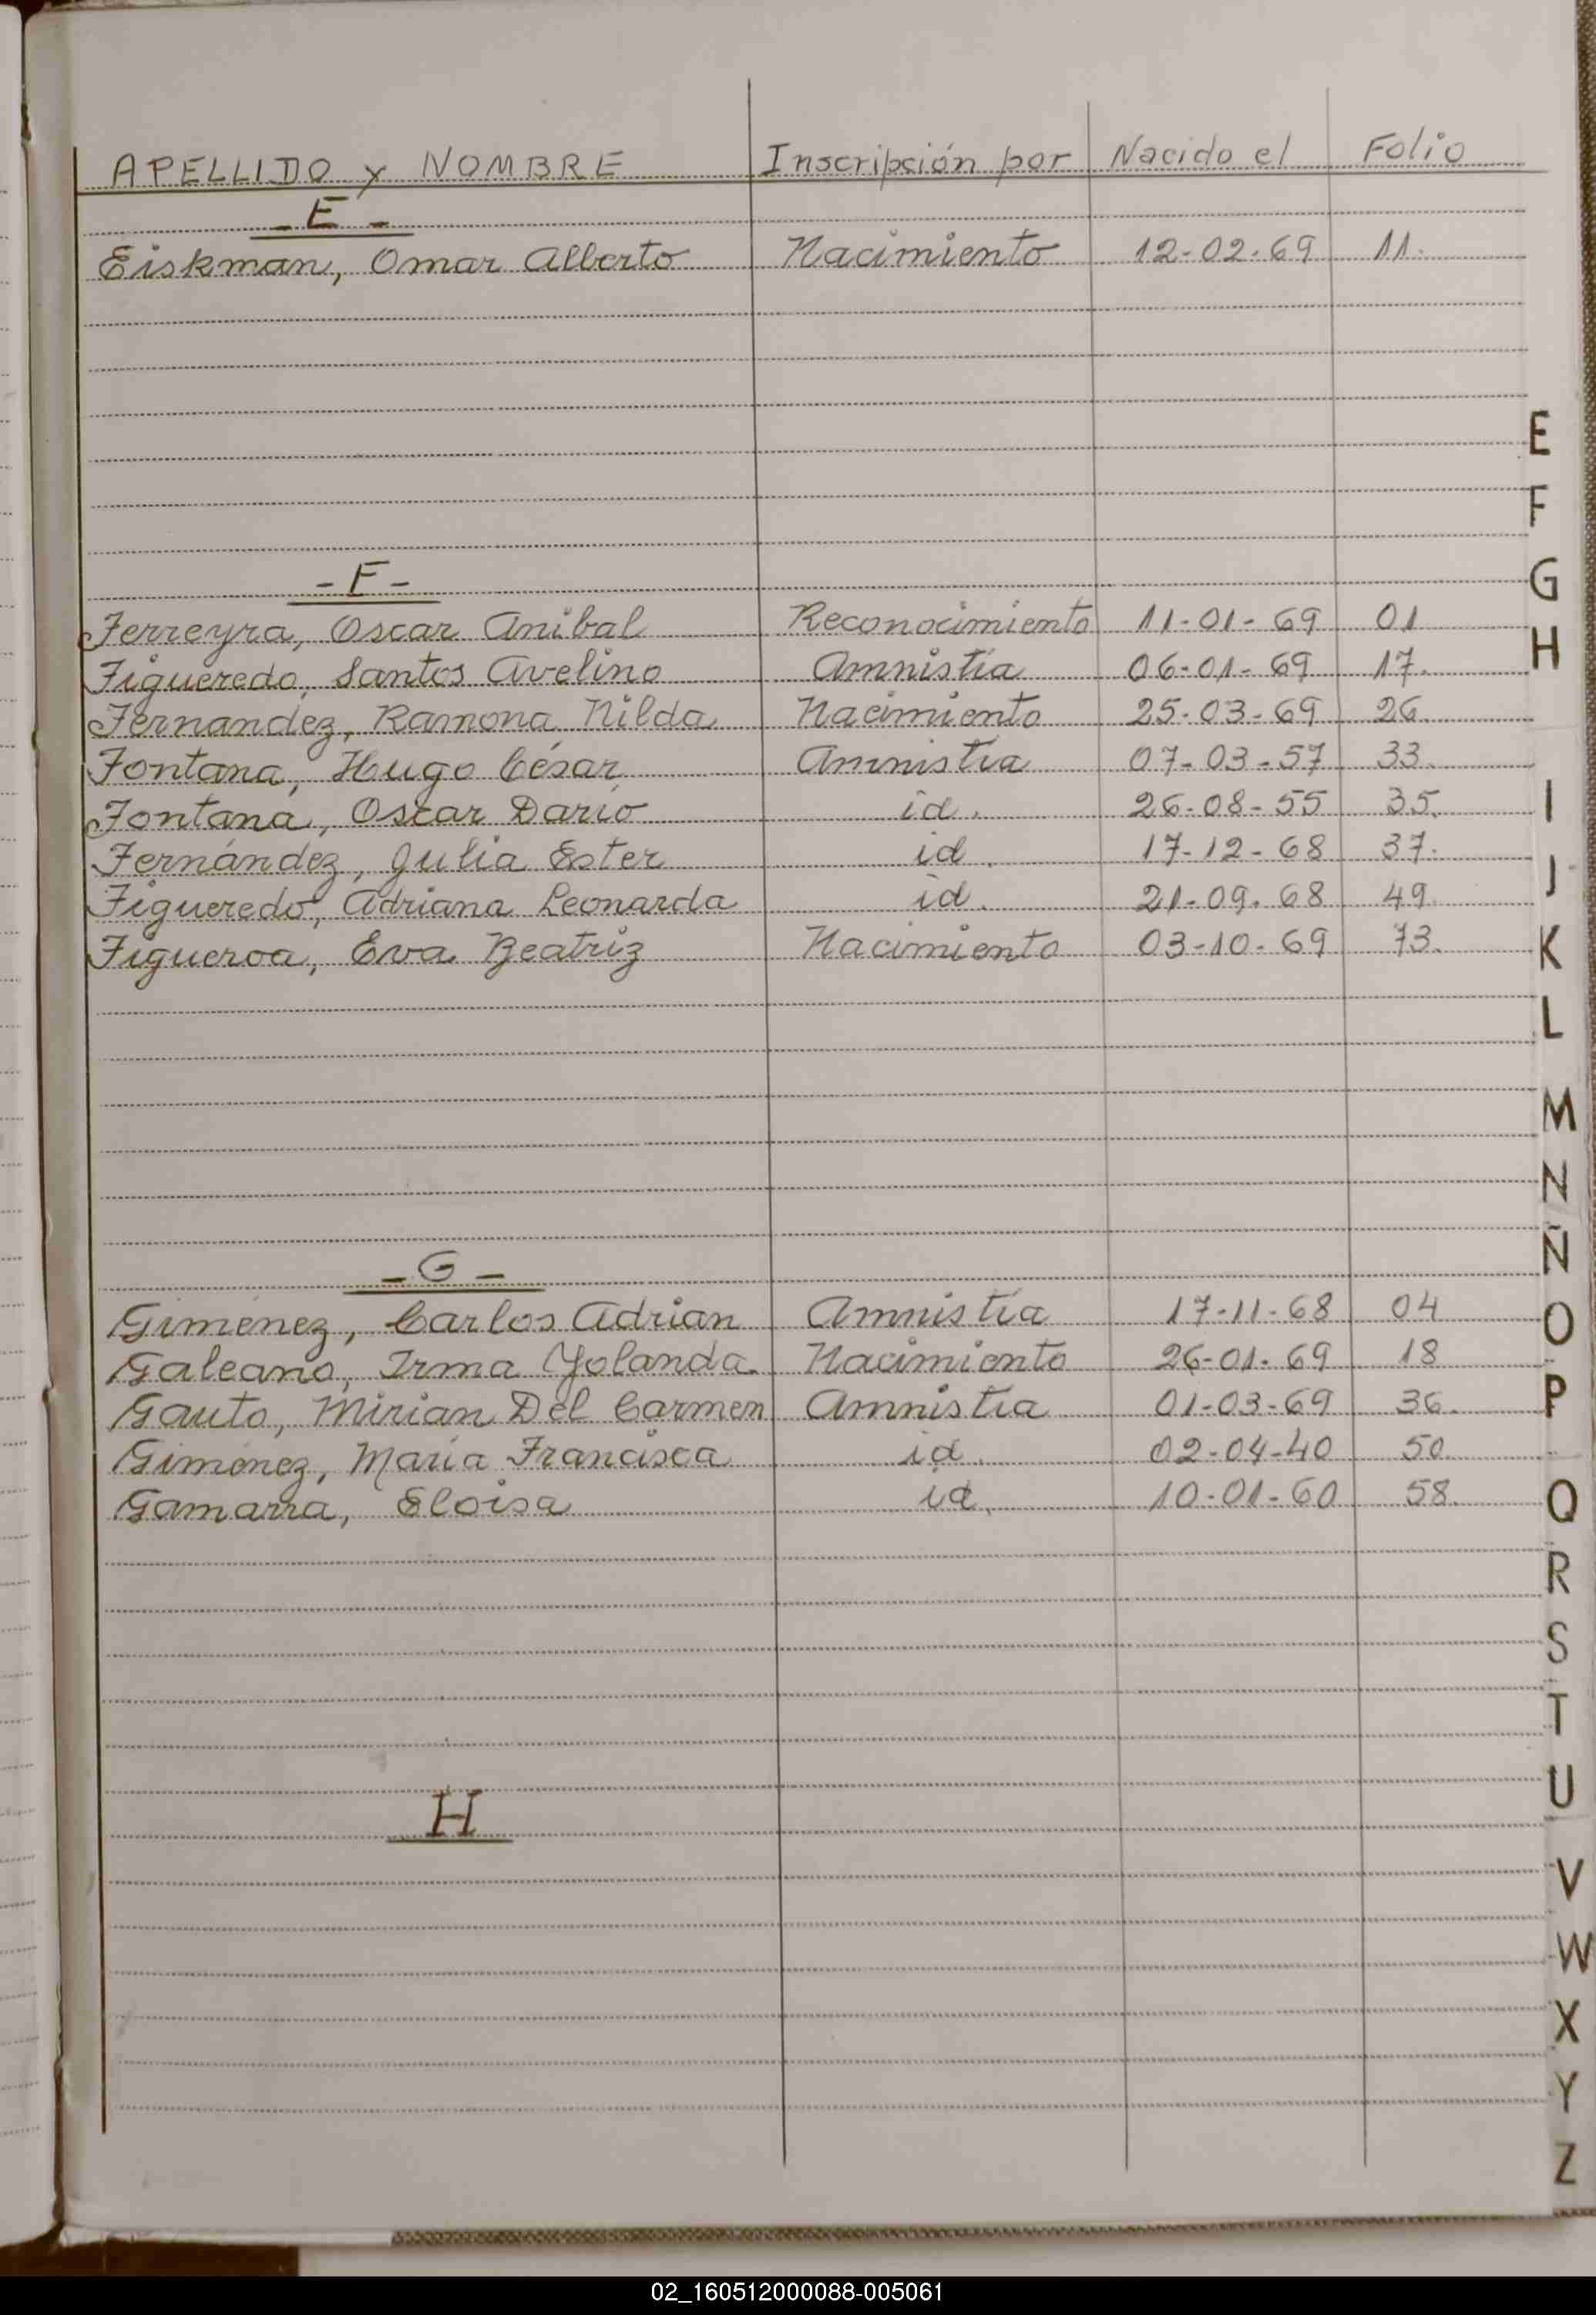 APELLIDO y NOMBRE Inscripción por Nacido el Folio
- E -
Eiskman, Omar Alberto Nacimiento 12-02-69 11.
- F -
Ferreyra, Oscar Anibal Reconocimiento 11-01-69 01
Figueredo, Santos Avelino Amnistía 06-01-69 17.
Fernandez, Ramona Nilda Nacimiento 25-03-69 26.
Fontana, Hugo César Amnistía 07-03-57 33.
Fontana, Oscar Darío id. 26-08-55 35.
Fernández, Julia Ester id. 17-12-68 37.
Figueredo, Adriana Leonarda id. 21-09-68 49.
Figueroa, Eva Beatriz Nacimiento 03-10-69 73.
- G -
Gimenez, Carlos Adrian Amnistía 17-11-68 04
Galeano, Irma Yolanda. Nacimiento 26-01-69 18
Gauto, Mirian Del Carmen Amnistía 01-03-69 36.
Giménez, María Francisca id. 02-04-40 50.
Gamarra, Eloisa id. 10-01-60 58.
H
E
F
G
H
I
J
K
L
M
N
Ñ
O
P
Q
R
S
T
U
V
W
X
Y
Z
02_160512000088-005061